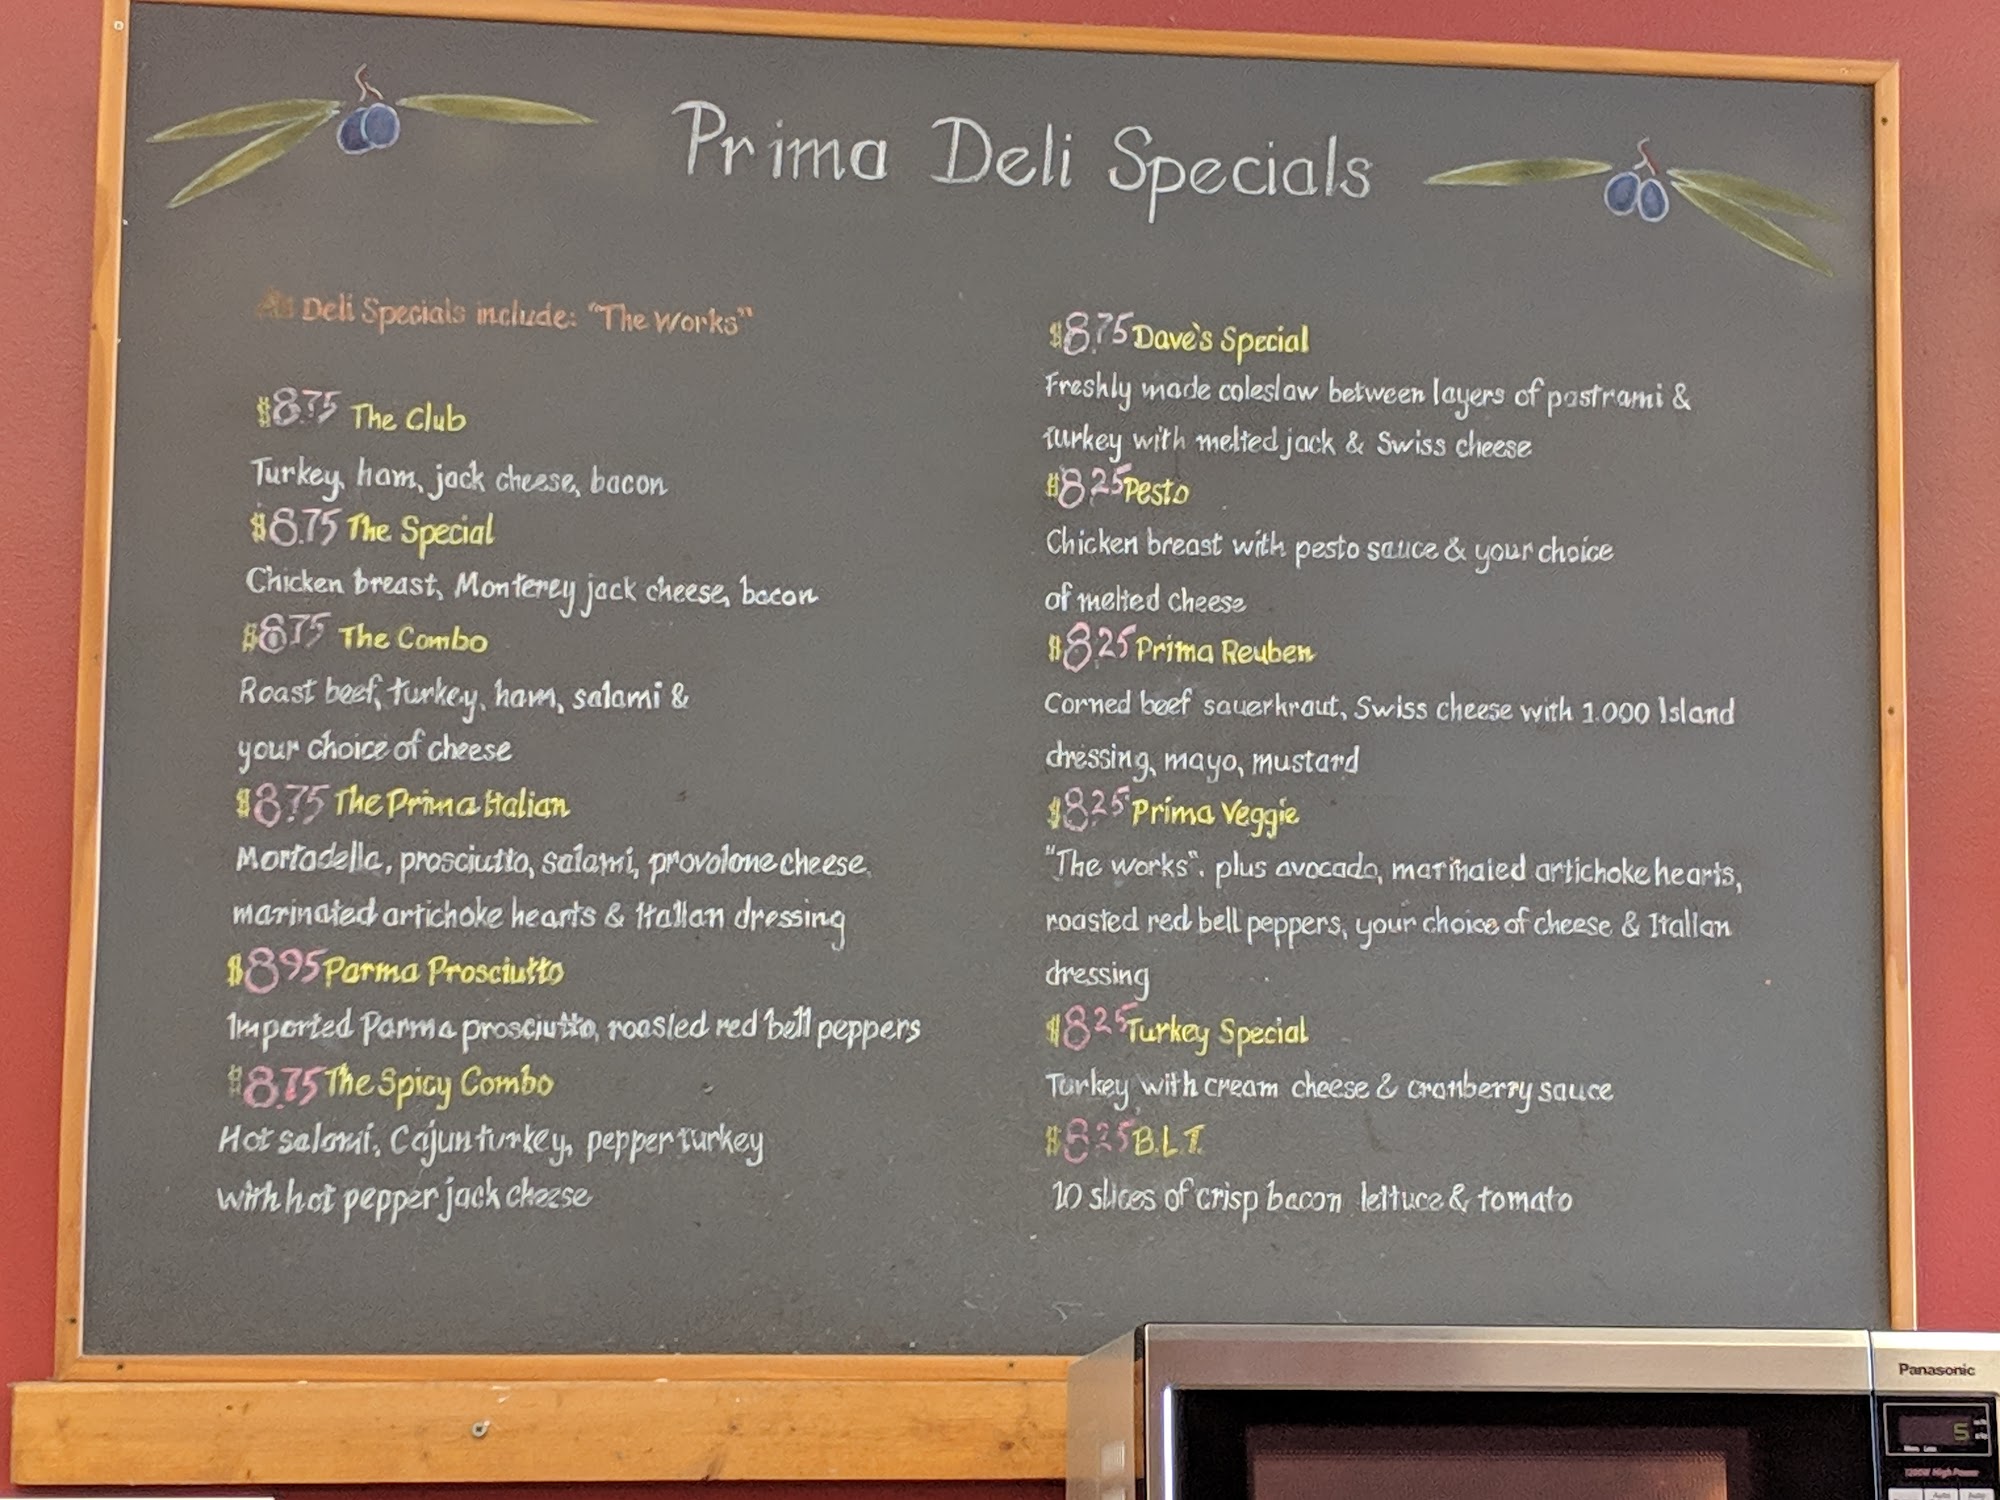 Prima Deli Specials
Deli Specials include: "The Works"
$8.75 The Club
Turkey, ham, jack cheese, bacon
$8.75 The Special
Chicken breast, Monterey jack cheese, bacon
$8.75 The Combo
Roast beef, turkey, ham, salami &
your choice of cheese
$8.75 The Prima Italian
Mortadella, prosciutto, salami, provolone cheese,
marinated artichoke hearts & Italian dressing
$8.95 Parma Prosciutto
Imported Parma prosciutto, roasted red bell peppers
$8.75 The Spicy Combo
Hot salami, Cajun turkey, pepper turkey
with hot pepper jack cheese
$8.75 Dave's Special
Freshly made coleslaw between layers of pastrami &
turkey with melted jack & Swiss cheese
$8.25 Pesto
Chicken breast with pesto sauce & your choice
of melted cheese
$8.25 Prima Reuben
Corned beef sauerkraut, Swiss cheese with 1.000 Island
dressing, mayo, mustard
$8.25 Prima Veggie
"The works". plus avocado, marinated artichoke hearts,
roasted red bell peppers, your choice of cheese & Italian
dressing
$8.25 Turkey Special
Turkey with cream cheese & cranberry sauce
$8.25 B.L.T.
10 slices of crisp bacon lettuce & tomato
Panasonic
5
1200W High Power